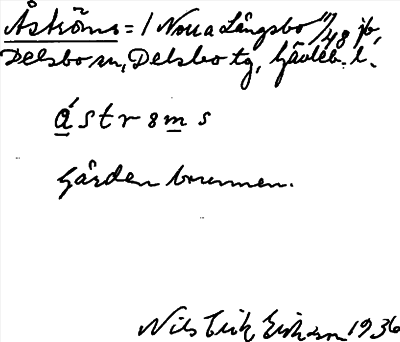 Åströms = 1 Norra Långsbo 11/48 jb,
Delsbo sn, Delsbo tg, Gävleb. l.
ástr8ms
Gården brunnen.
Nils Erik Erikson 1936